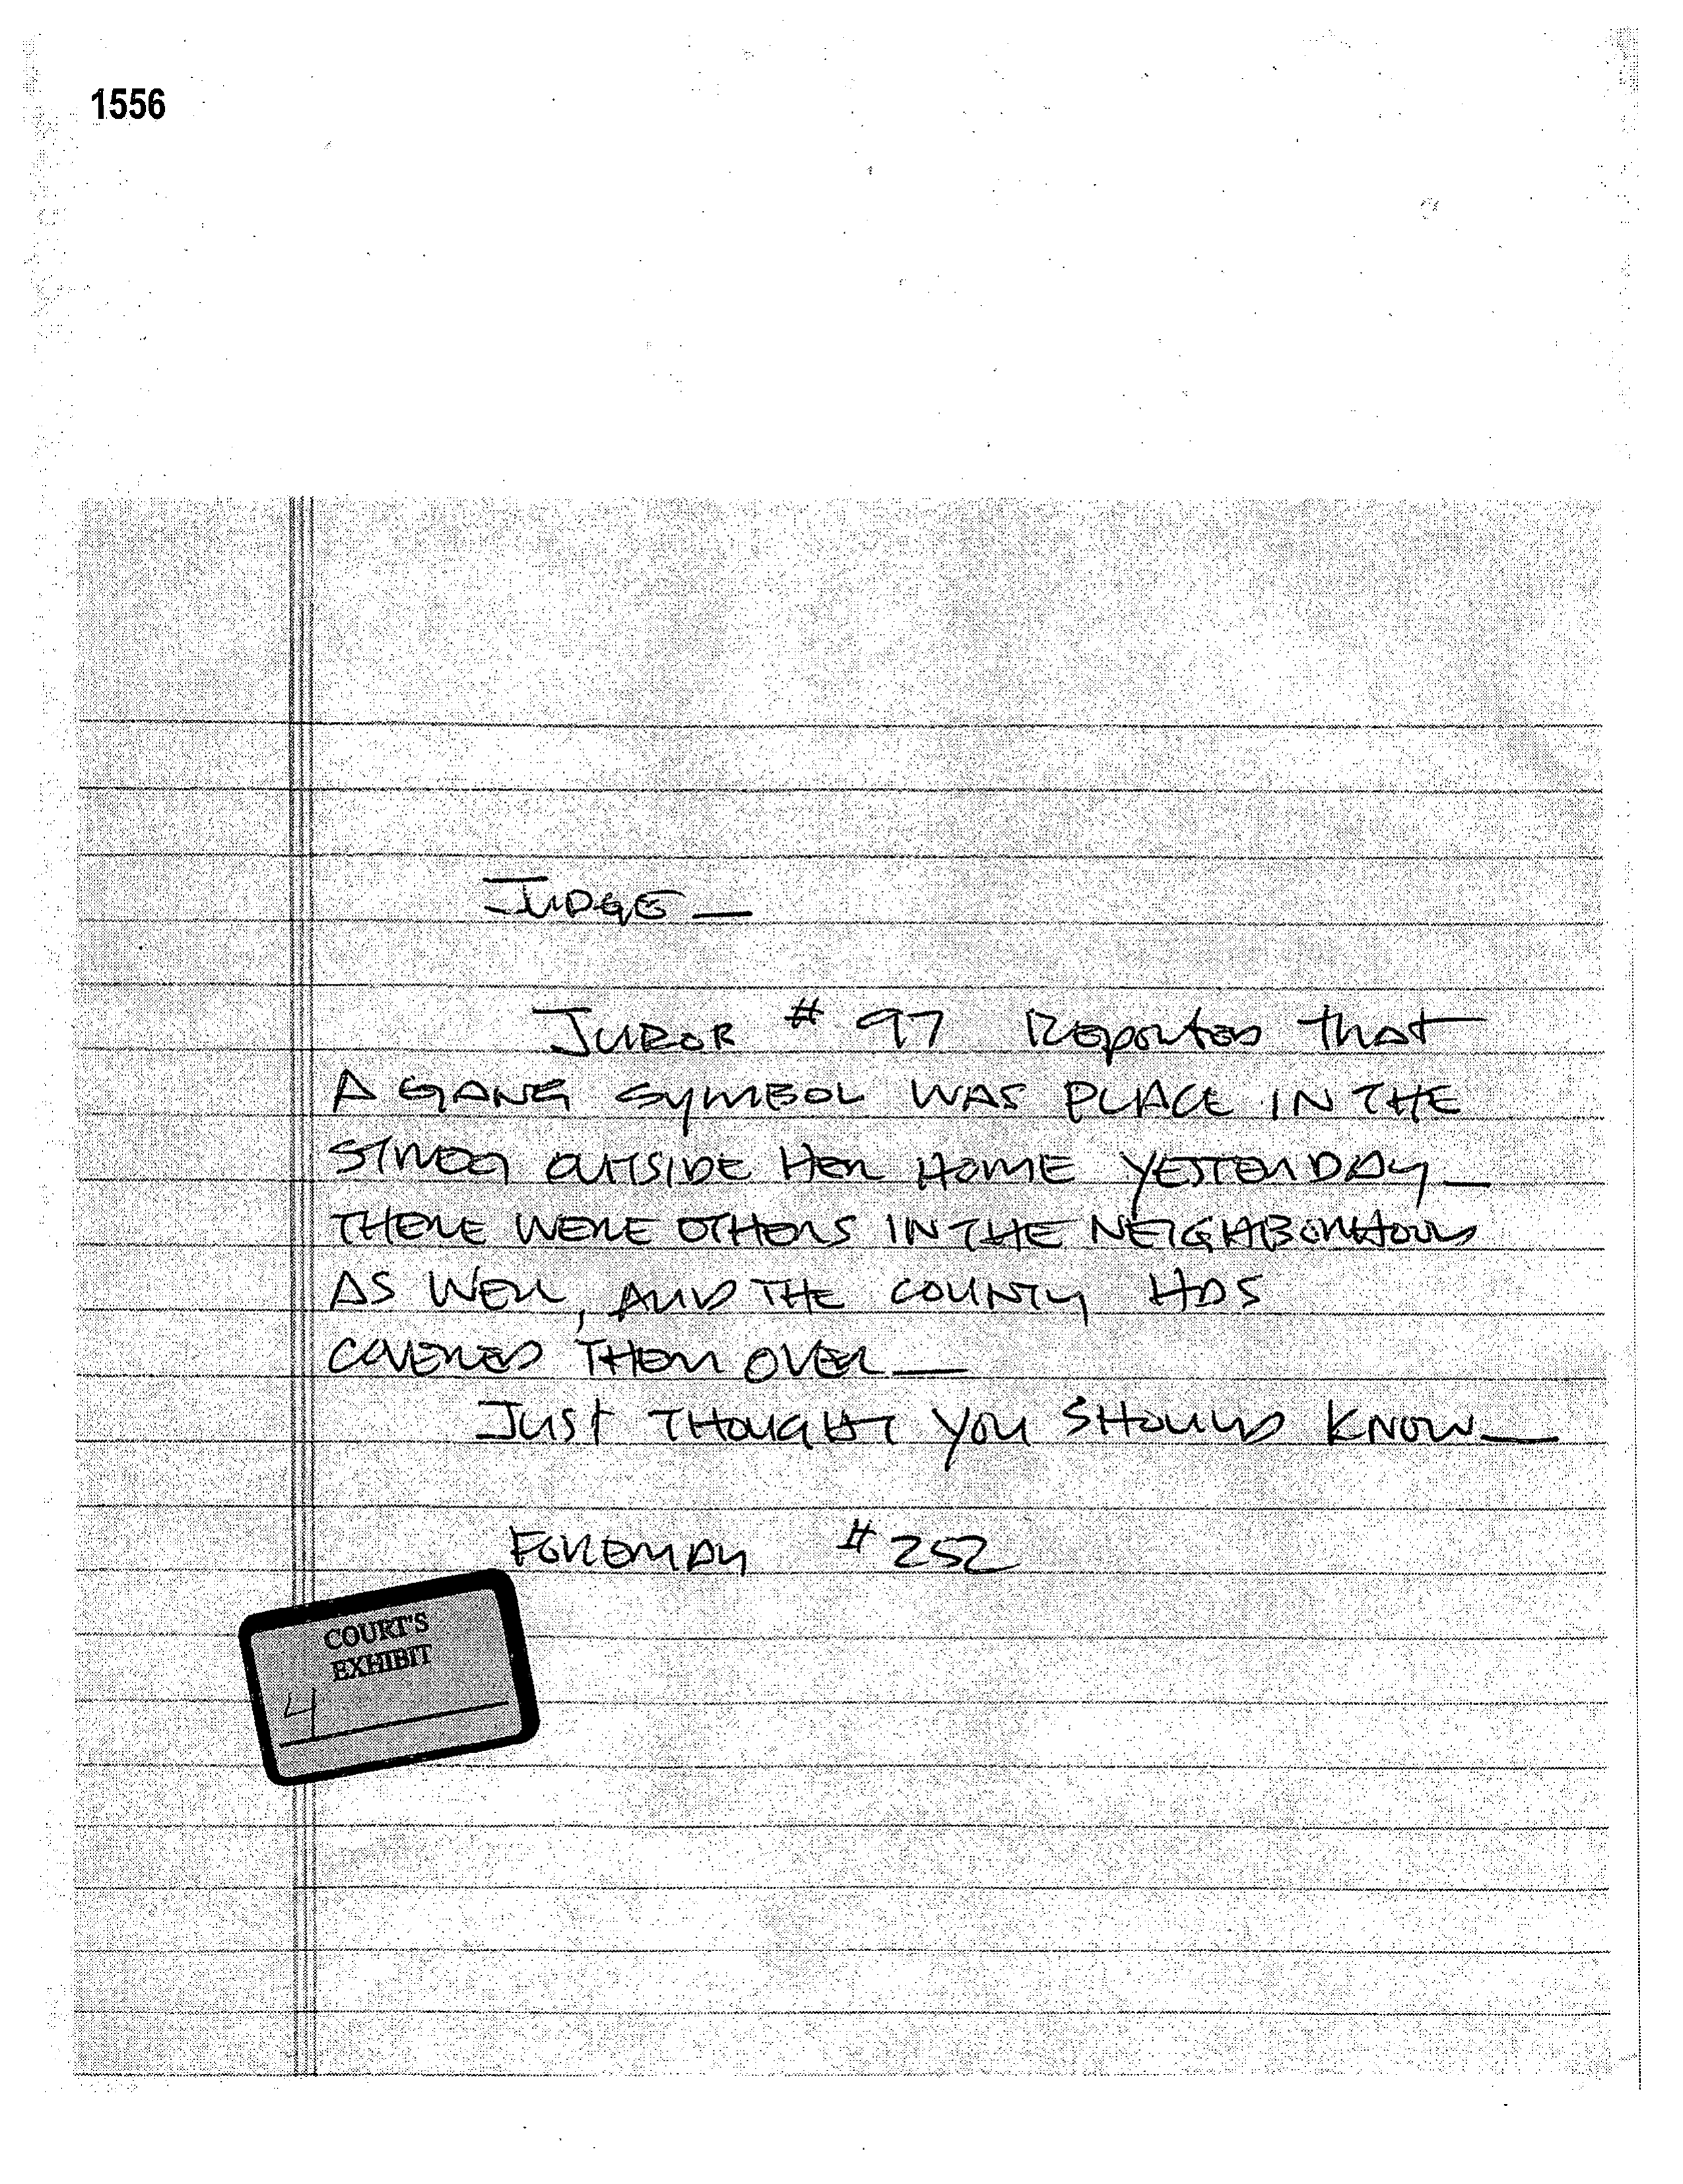 1556
JUDGE —
JUROR # 97 Reported that
A GANG SYMBOL WAS PLACE IN THE
STREET OUTSIDE HER HOME YESTERDAY —
THERE WERE OTHERS IN THE NEIGHBORHOOD
AS WELL, AND THE COUNTY HAS
COVERED THEM OVER —
JUST THOUGHT YOU SHOULD KNOW —
FOREMAN # 252
COURT'S
EXHIBIT
4